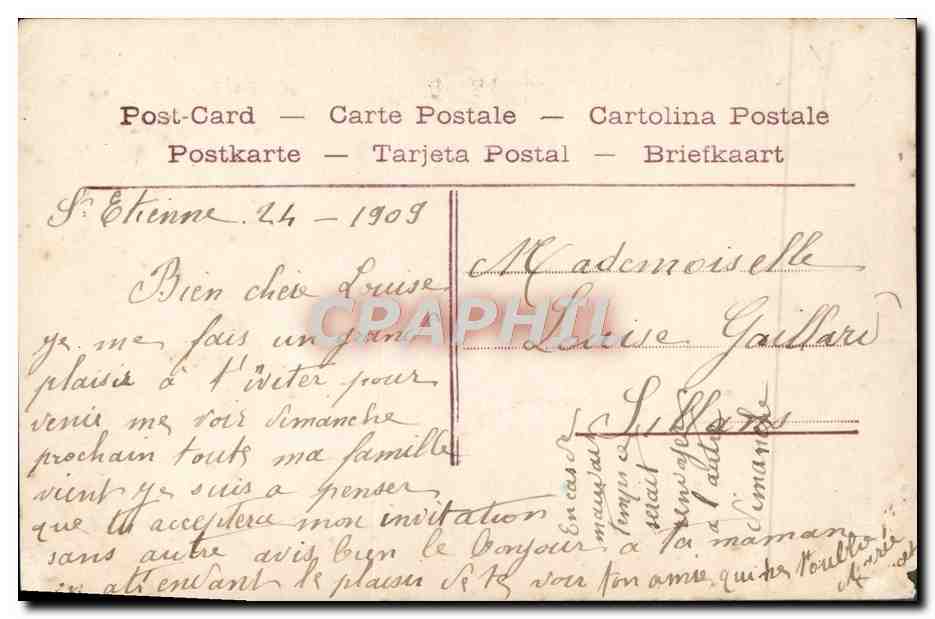 Post-Card — Carte Postale — Cartolina Postale
Postkarte — Tarjeta Postal — Briefkaart
St Etienne. 24 - 1909
Bien chère Louise
je me fais un grand
plaisir à t'iviter pour
venir me voir dimanche
prochain toute ma famille
vient je suis a penser
que tu acceptera mon invitation
sans autre avis bien le bonjour a ta maman
en attendant le plaisir de te voir ton amie qui ne t'oublie
Mademoiselle
Louise Gaillard
Sillans
En cas de
mauvais
temps ce
serait
renvoyer
a l'autre
dimanche
CPAPHIL